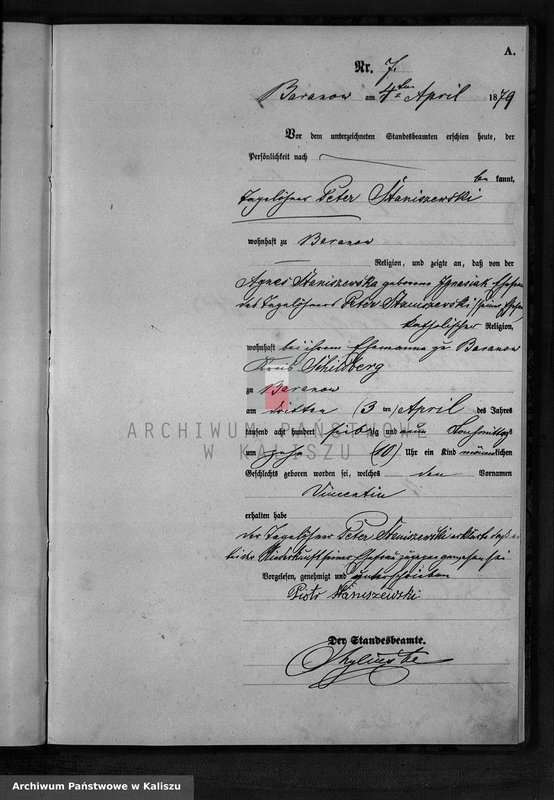 A.
Nr. 7.
Baranow am 4ten April 1879
Vor dem unterzeichneten Standesbeamten erschien heute, der
Persönlichkeit nach
be kannt,
Tagelöhner Peter Staniszewski
wohnhaft zu Baranow
Religion, und zeigte an, daß von der
Agnes Staniszewska geborene Ignasiak
des Tagelöhners Peter Staniszewski
katholischer Religion,
wohnhaft bei ihrem Ehemanne zu Baranow
Kreis Schildberg
zu Baranow
am dritten (3 ten) April des Jahres
tausend acht hundert siebzig und neun Vormittags
um zehn (10) Uhr ein Kind männlichen
Geschlechts geboren worden sei, welches den Vornamen
Vincentin
erhalten habe
Der Tagelöhner Peter Staniszewski erklärte daß er
bei der Niederkunft seiner Ehefrau zugegen gewesen sei
Vorgelesen, genehmigt und unterschrieben
Piotr Staniszewski
Der Standesbeamte.
ARCHIWUM PAŃSTWOWE
W KALISZU
Archiwum Państwowe w Kaliszu